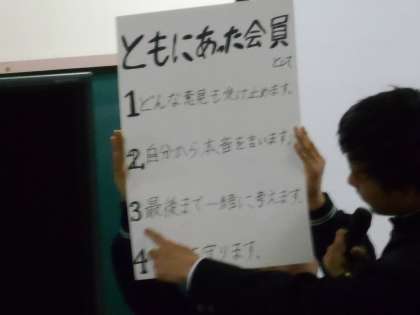 ともにあった会員
として
1 どんな意見も受け止めます。
2 自分から本音を言います。
3 最後まで一緒に考えます。
4 に守ります。